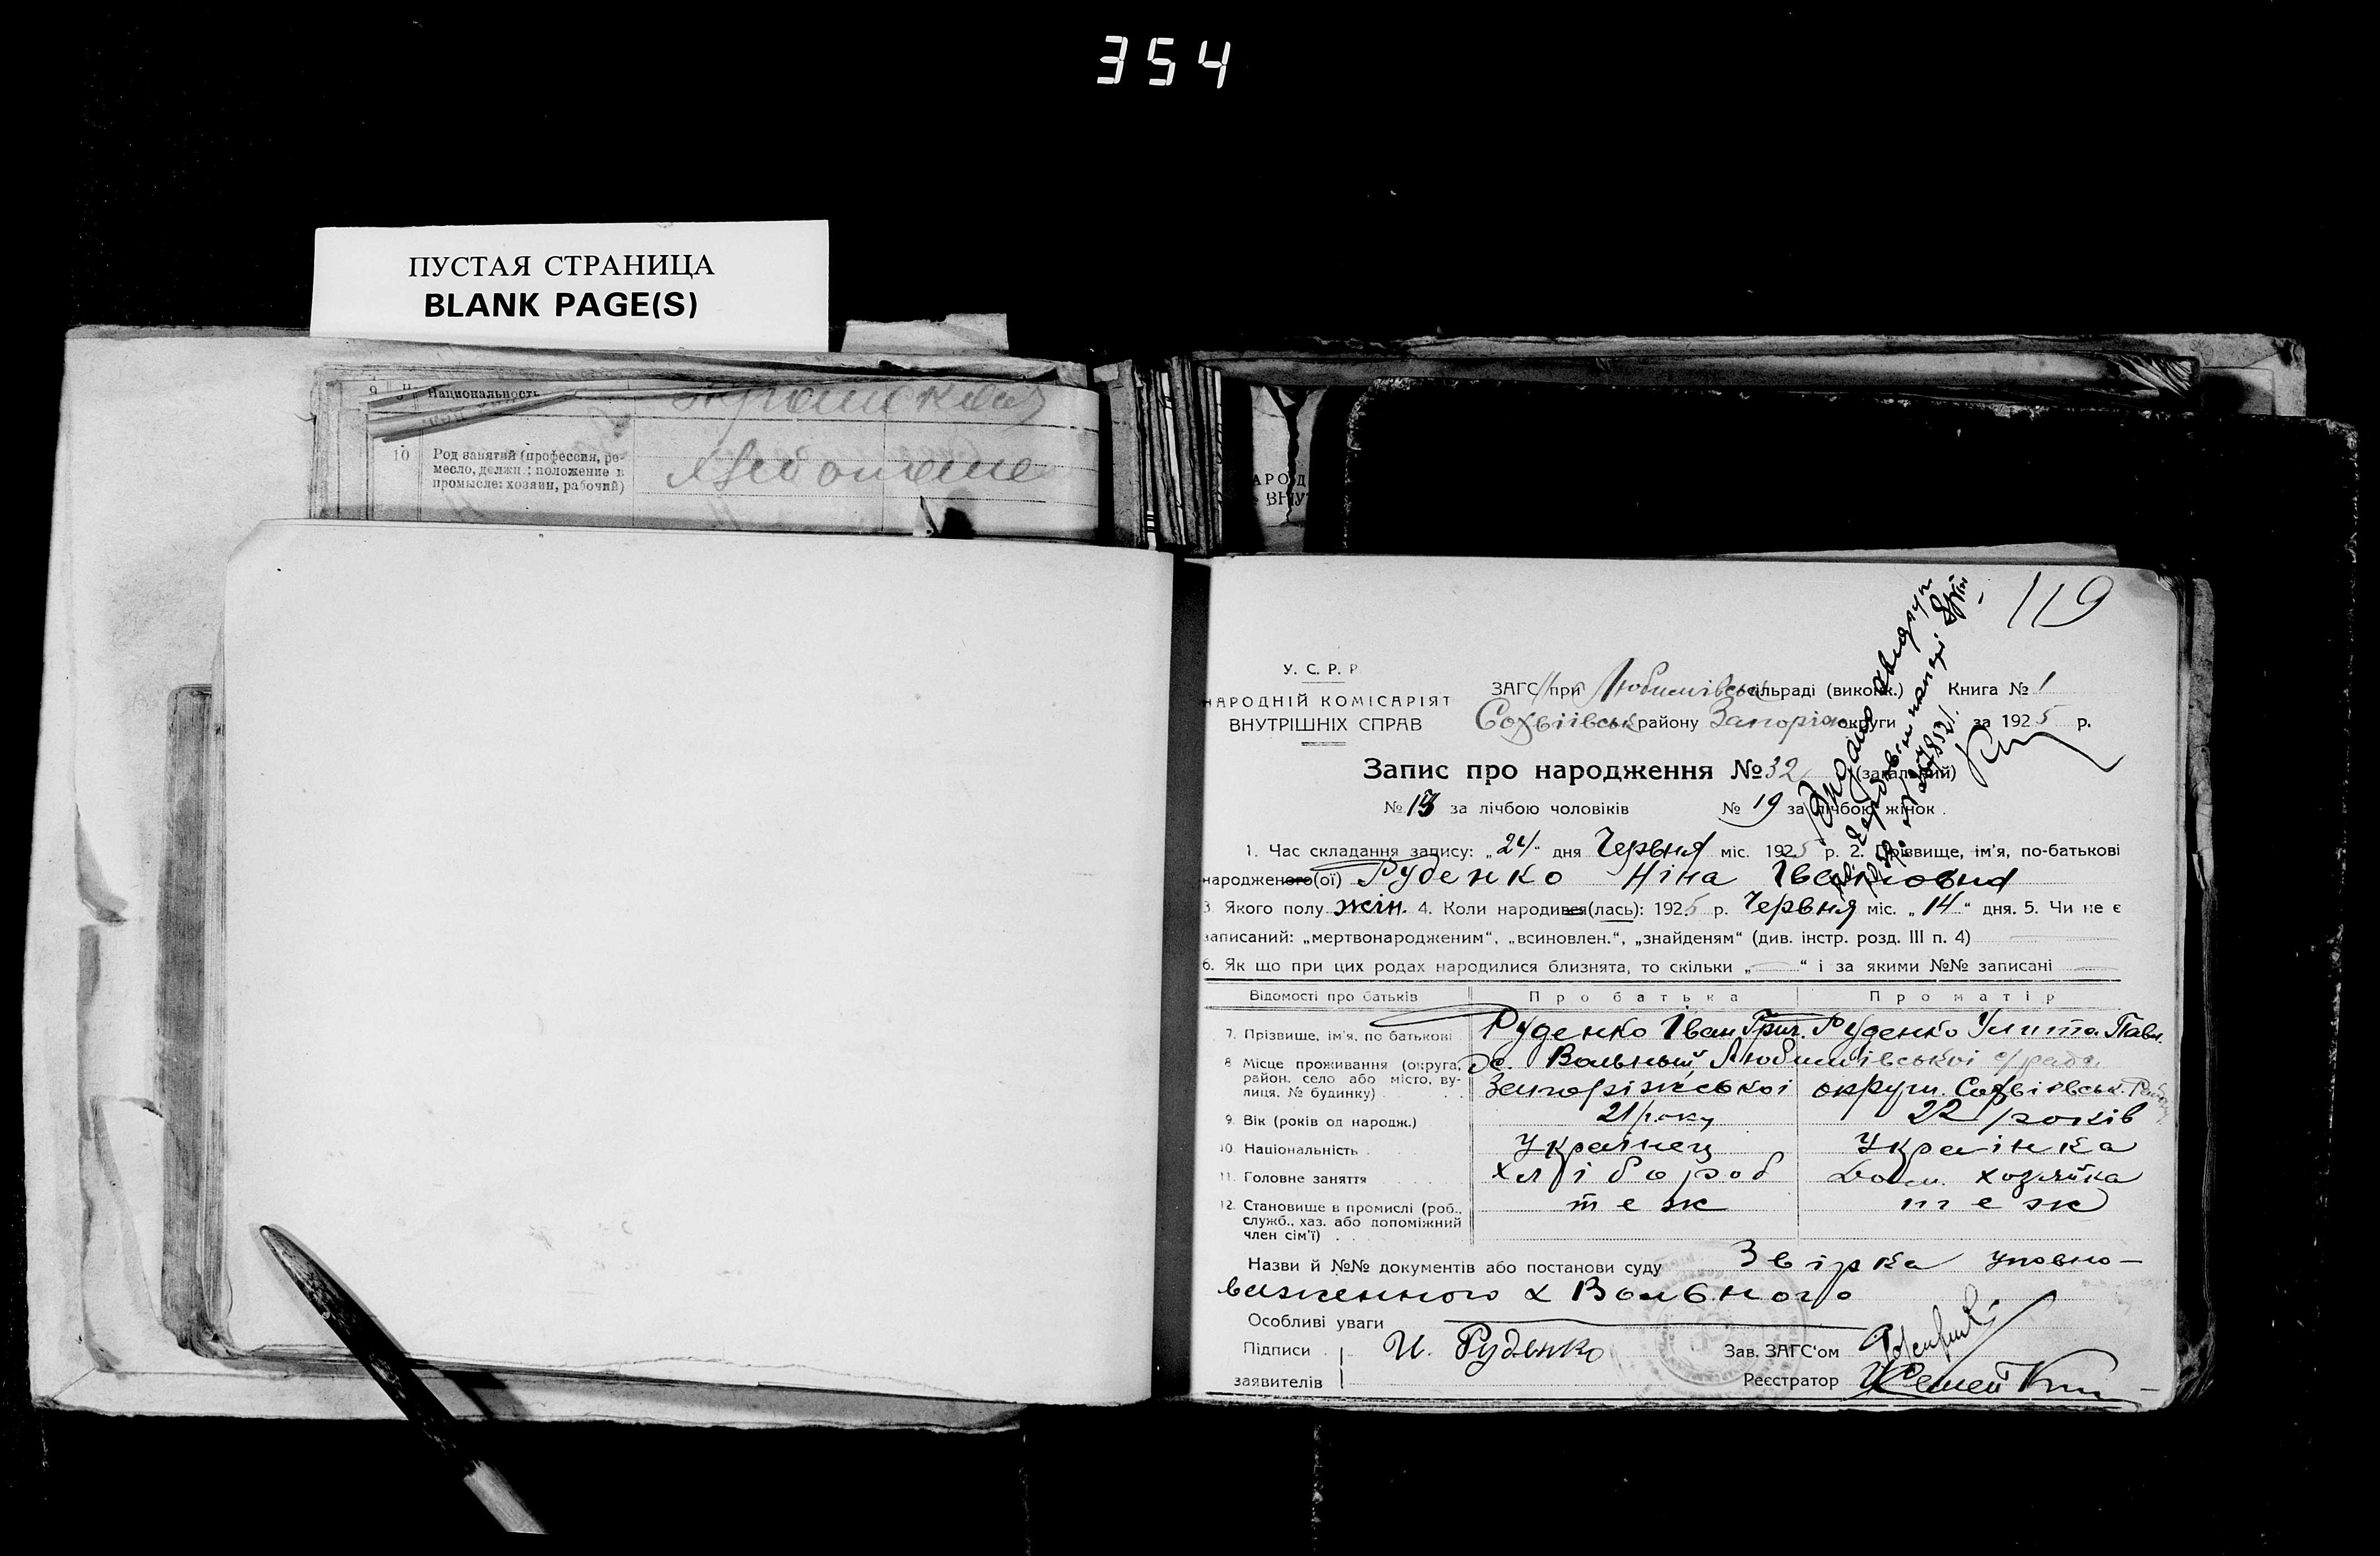 354
ПУСТАЯ СТРАНИЦА
BLANK PAGE(S)
Национальность
10 Род занятий (профессия, ре-
месло, должн.: положение в
промысле: хозяин, рабочий)
119
У. С. Р. Р.
НАРОДНІЙ КОМІСАРІЯТ
ВНУТРІШНІХ СПРАВ
ЗАГС при Любимівськ сільраді (викокк.) Книга № 1
Софіївськ району Запоріж округи за 1925 р.
Запис про народження № 32 (загальний)
№ 13 за лічбою чоловіків № 19 за лічбою жінок.
1. Час складання запису: „24“ дня Червня міс. 1925 р. 2. Прізвище, ім'я, по-батькові
народженого(ої) Руденко Ніна Івановна
3. Якого полу жін. 4. Коли народився(лась): 1925 р. Червня міс. „14“ дня. 5. Чи не є
записаний: „мертвонародженим“, „всиновлен.“, „знайденям“ (див. інстр. розд. III п. 4)
6. Як що при цих родах народилися близнята, то скільки „ “ і за якими №№ записані
Відомості про батьків Про батька Про матір
7. Прізвище, ім'я, по батькові Руденко Іван Григ. Руденко Улита Павл.
8 Місце проживання (округа, район, село або місто, ву-лиця, № будинку) х. Вольный Любимівської с/ради
Запоріжської округи. Софіївськ. Району
9. Вік (років од народж.) 21 року 22 років
10. Національність Українец Українка
11. Головне заняття хлібороб Дом. хозяйка
12. Становище в промислі (роб., служб., хаз. або допоміжний член сім'ї) теж теж
Назви й №№ документів або постанови суду Звірка уповно-
важенного х Вольного
Особливі уваги
Підписи И. Руденко Зав. ЗАГС'ом
заявителів Реєстратор